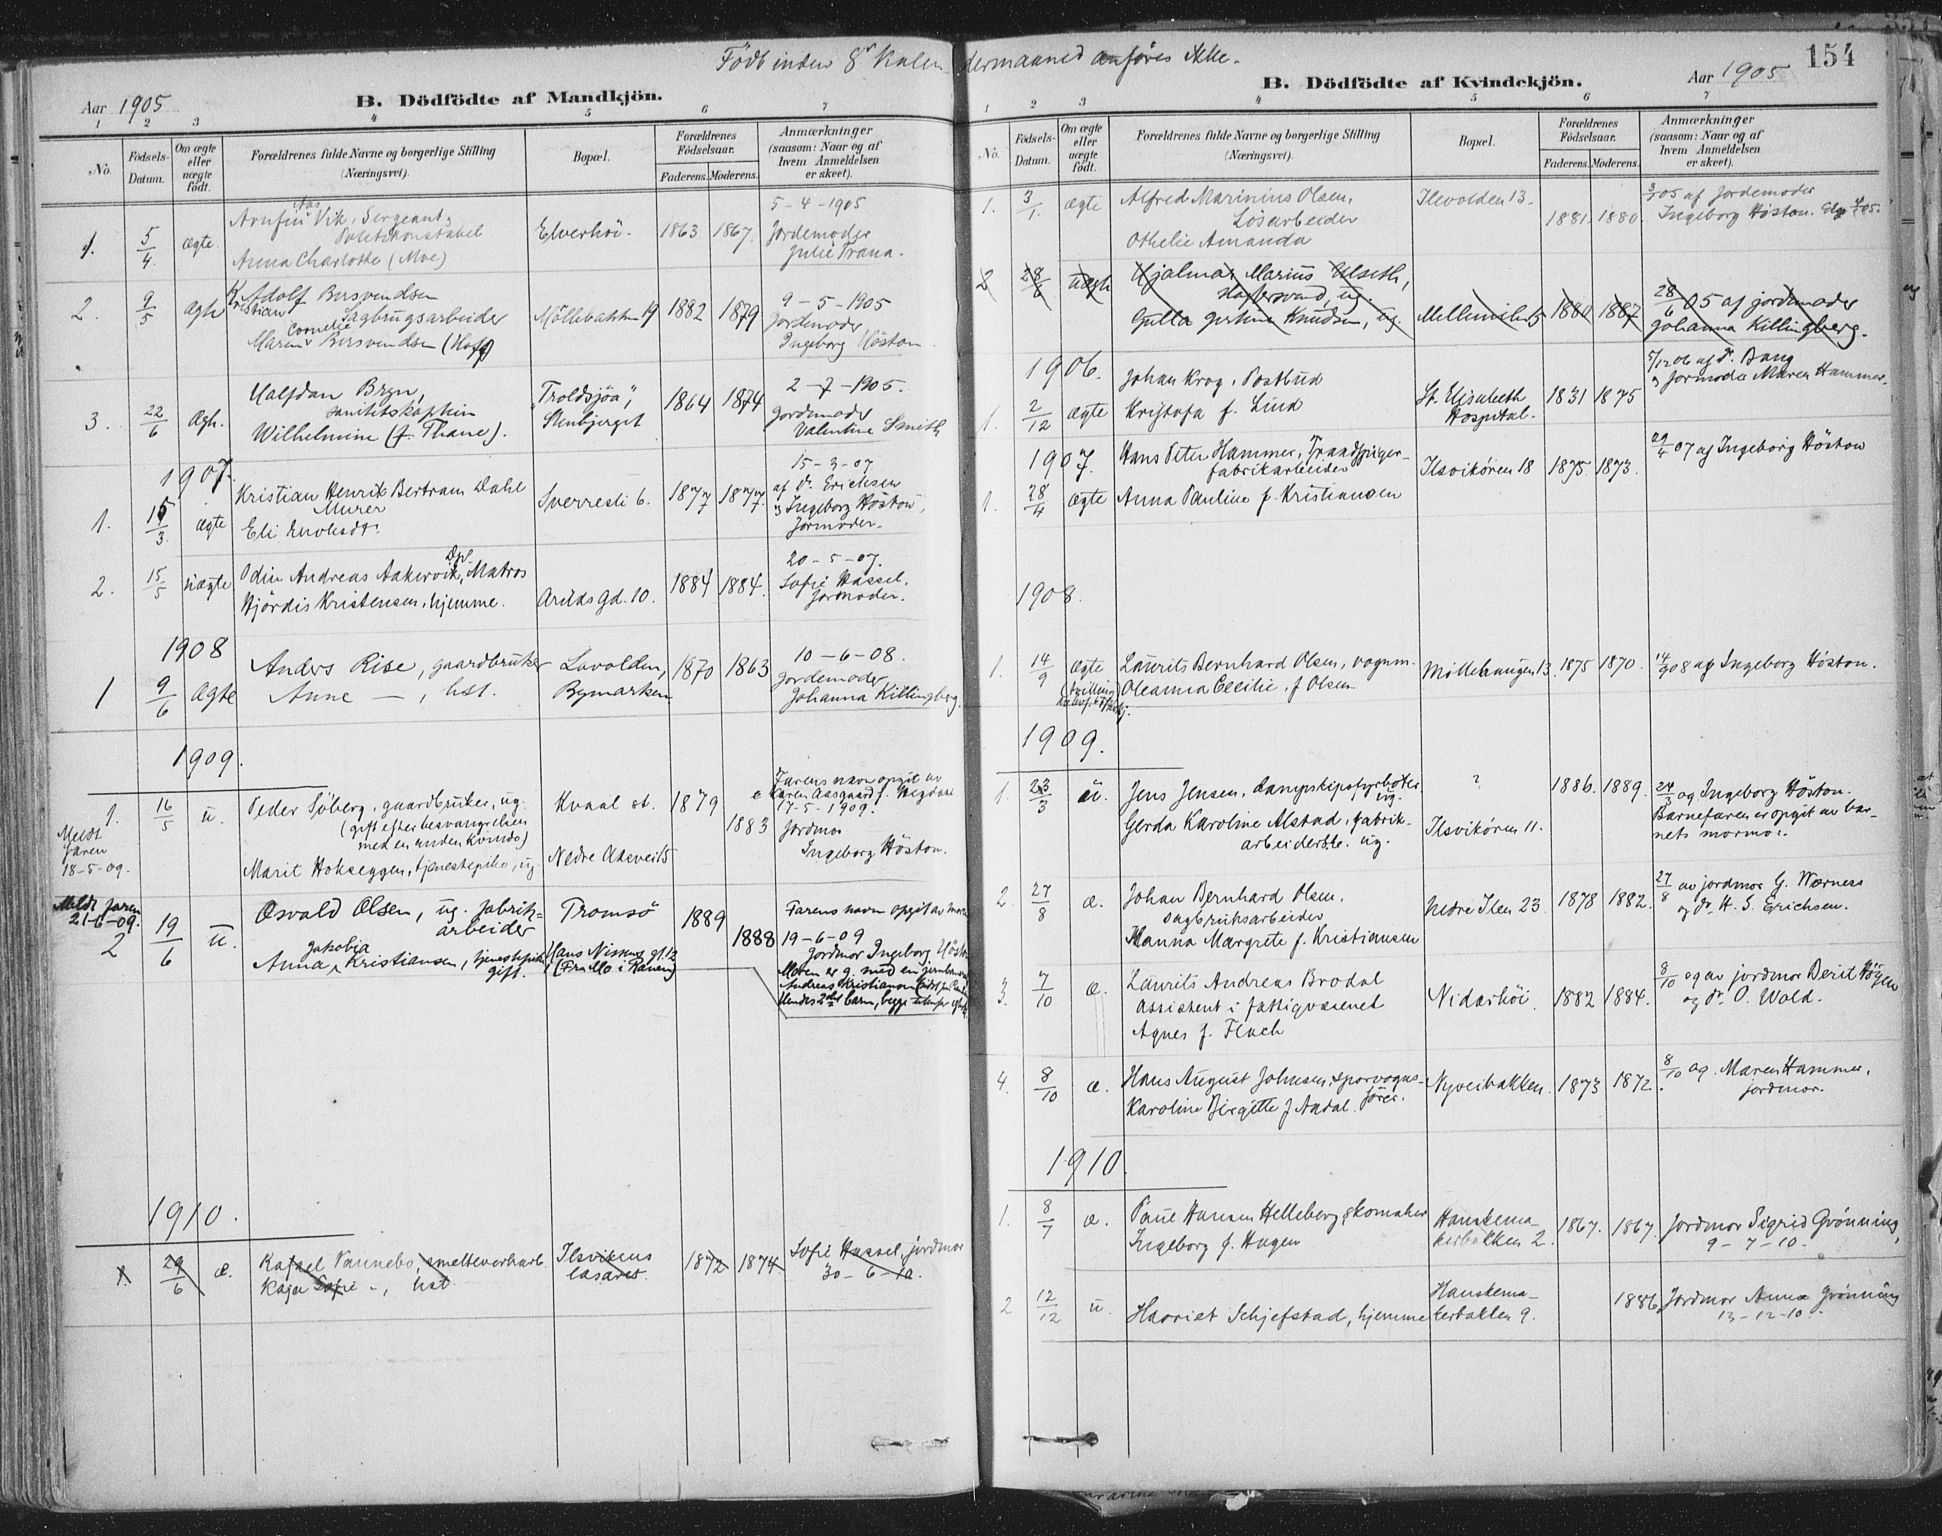 Födt inden 8de Kalendermaaned anföres ikke.
Aar 1905
B. Dödfödte af Mandkjön.
1 2 3 4 5 6 7
No.
Födsels-Datum.
Om ægte eller uægte födt.
Forældrenes fulde Navne og borgerlige Stilling
(Næringsvei).
Bopæl.
Forældrenes Födselsaar.
Faderens. Moderens.
Anmærkninger
(saasom: Naar og af
hvem Anmeldelsen
er skeet).
1. 5/4 ægte.
Arnfin Aas Vik, Sergeant,
Politikonstabel
Anna Charlotte (Moe)
Elverhöi. 1863 1867.
5-4-1905
Jordemoder
Julie Prana.
2. 9/5 Ægte
Kristian Adolf Bersvendsen
Sagbrugsarbeider
Maren Cornelie Bersvendsen (Hoff)
Möllebakken 19 1882 1879
9-5-1905
Jordemoder
Ingeborg Höston.
3. 22/6 Ægte.
Halfdan Bryn,
Sanitetskaptein
Wilhelmine (f. Thane).
"Troldsjöa",
Stenbjerget 1864 1874
2-7-1905.
Jordemoder
Valentine Smith
1907.
1. 15/3 ægte
Kristian Henrik Bertram Dahl
Murer
Eli Enoksdtr.
Sverresli 6. 1877 1877.
15-3-07
af dr. Erichsen
og Ingeborg Höston,
Jormoder.
2. 15/5 uægte
Odin Andreas Aakervik, Matros
Hjördis Kristensen, hjemme.
Arilds gd. 10. 1884 1884.
20-5-07.
Sofie Hassel.
Jormoder.
1908
1 9/6 Ægte
Anders Rise, gaardbruker
Anne — , hst.
Lavolden,
Bymarken 1870 1863
10-6-08.
Jordemoder
Johanna Killingberg.
1909.
1. 16/5 u.
Meldt
faren
18-5-09.
Peder Söberg, gaardbruker, ug.
(gift efter besvangrelsen
med en anden kvinde)
Marit Hokseggen, tjenestepike, ug.
Kvaal st. 1879
Nedre Aasvei 5 1883
Farens navn opgit av
Karen Aasgaard f.
17-5-1909.
Jordmor
Ingeborg Höston.
Meldt faren
21-6-09.
2 19/6 u.
Osvald Olsen, ug. fabrik-
arbeider
Anna Jakobia Kristiansen, tjenestepike
gift.
Tromsö 1889
Hans Nissens gt. 12
(Fra Mo i Ranen) 1888
Farens navn opgit av moren
19-6-09
Jordmor Ingeborg Höston
Moren er g. med en
Andreas Kristiansen
Hendes 2det barn, begge
1910.
1. 29/6 æ.
Rafael Vannebo, smelteverksarb.
Kaja Sofie —, hst.
Ilsvikens
lasaret. 1872 1874.
Sofie Hassel, jordmor
30-6-10.
154
Aar 1905
B. Dödfödte af Kvindekjön.
1 2 3 4 5 6 7
No.
Födsels-Datum.
Om ægte eller uægte födt.
Forældrenes fulde Navne og borgerlige Stilling
(Næringsvei).
Bopæl.
Forældrenes Födselsaar.
Faderens. Moderens.
Anmærkninger
(saasom: Naar og af
hvem Anmeldelsen
er skeet).
1. 3/1 ægte
Alfred Marinius Olsen,
Lösarbeider
Othelie Amanda
Ilevolden 13. 1881. 1880.
3/1 05 af Jordemoder
Ingeborg Höston.
2 28/6 uægte
Hjalmar Marius Ulseth,
ug.
Gulla Gertine Knudsen, ug.
Mellemilen 5 1880 1887
28/6 05 af jordemoder
Johanna Killingberg.
1906.
1. 2/12 ægte
Johan Krog, Postbud
Kristofa f. Lind
St. Elisabeth
Hospital. 1831 1875
5/12 06 af dr. Bang
og Jormoder Maren Hammer.
1907.
1. 28/4 ægte
Hans Peter Hammer, Traadspiger-
fabrikarbeider
Anna Pauline f. Kristiansen
Ilsvikören 18 1875 1873.
29/4 07 af Ingeborg Höston
1908.
1. 14/9 ægte
(tvilling
Laurits Bernhard Olsen, vognm.
Oleanna Cecilie, f. Olsen
Möllehaugen 13. 1875 1870.
14/9 08 af Ingeborg Höston.
1909.
1. 23/3 u.
Jens Jensen, dampskipsfyrböter
ug.
Gerda Karoline Alstad, fabrik-
arbeiderske. ug.
? 1886. 1889.
Ilsvikören 11.
24/3 ag Ingeborg Höston.
Barnefaren er opgit av bar-
nets mormor.
2. 27/8 æ.
Johan Bernhard Olsen.
sagbruksarbeider
Hanna Margrete f. Kristiansen
Nedre Ilen 23. 1878 1882.
27/8 av jordmor G. Wærness
og dr. H. S. Erichsen.
3. 7/10 æ.
Laurits Andreas Brodal
assistent i fattigvæsenet
Agnes f. Flach
Nidarhöi. 1882 1884.
8/10 09 av jordmor Berit Höyen
og dr. O. Wold.
4. 8/10 æ.
Hans August Johnsen, sporvogns-
förer.
Karoline Birgitte f. Andal.
Nyveibakken. 1873 1872.
8/10 09. Maren Hammer,
jordmor.
1910.
1. 8/7 æ.
Paul Hansen Helleberg, skomaker
Ingeborg f. Haugen
Hanskema-
kerbakken 2. 1867. 1867.
Jordmor Sigrid Grönning,
9-7-10.
2 12/12 u.
Harriet Schjefstad, hjemme
Hanskema-
kerbakken 9. 1886
Jordmor Anna Grönning
13-12-10.